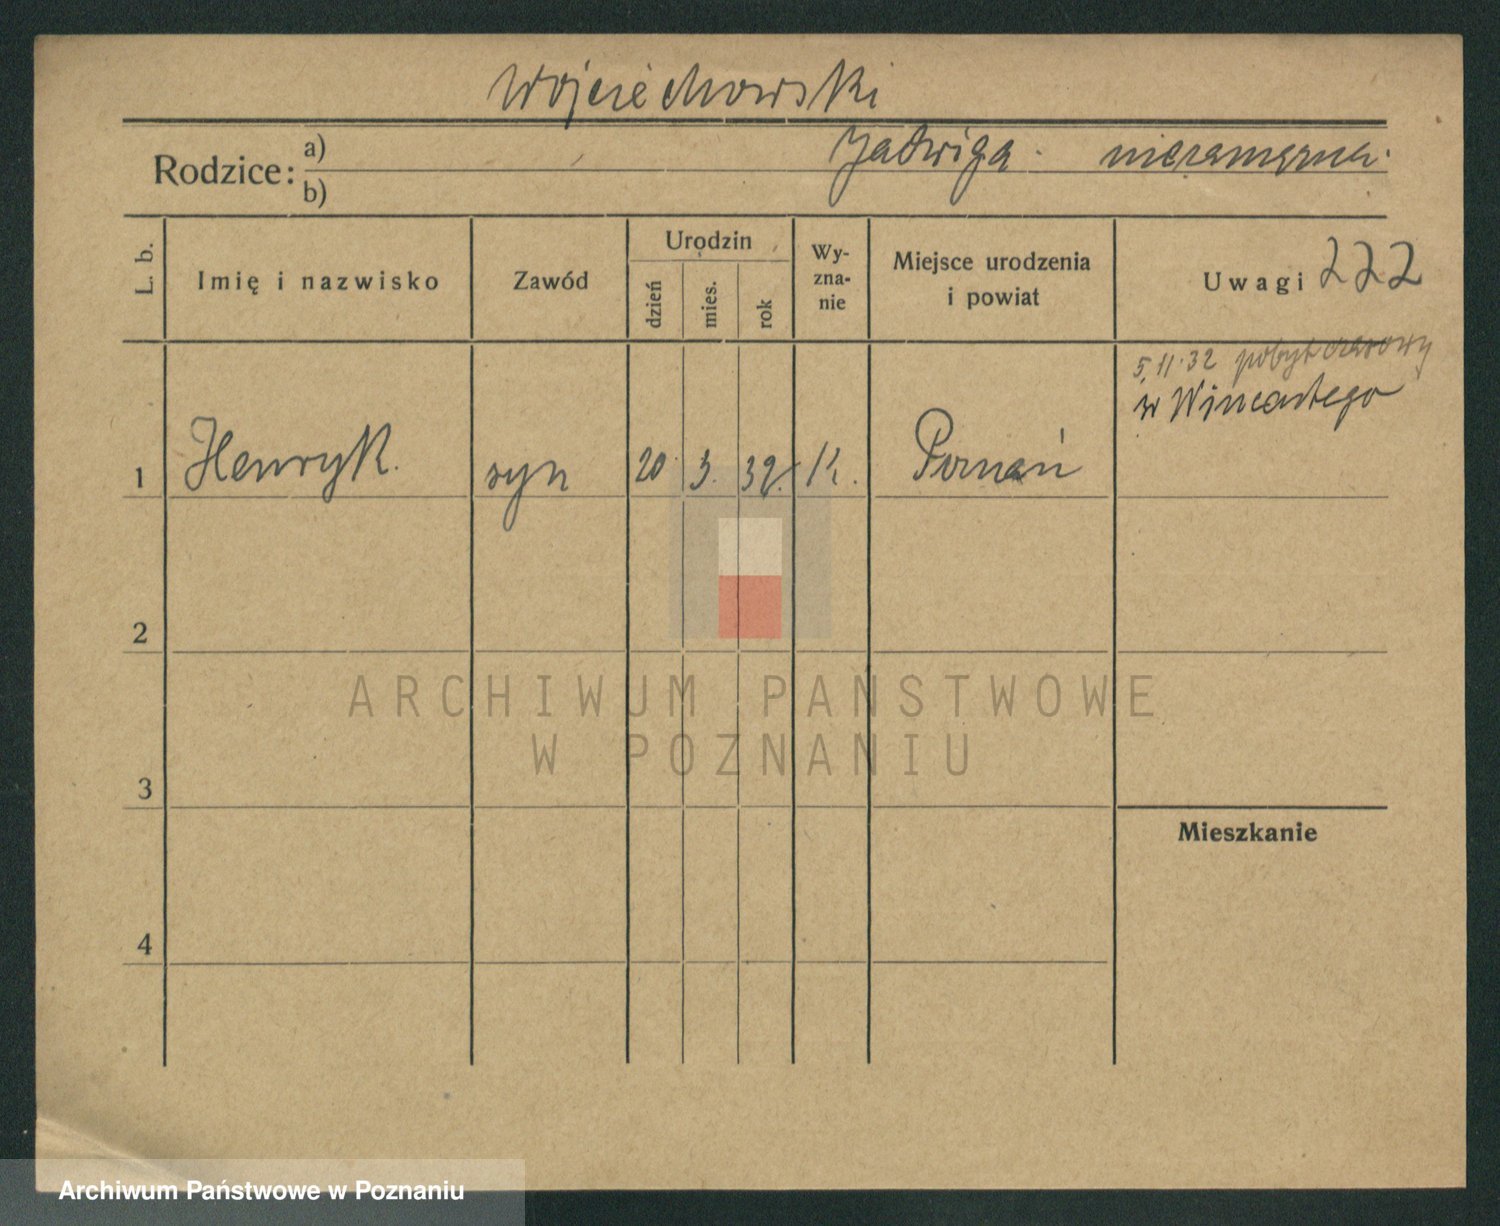 Wojciechowski
Rodzice: a) Jadwiga niezamężna.
b)
L. b. Imię i nazwisko Zawód Urodzin dzień mies. rok Wy-zna-nie Miejsce urodzenia i powiat Uwagi 222
5.11.32 pobyt czasowy
w Wincentego
1 Henryk. syn 20 3. 32. K. Poznań
2
3
Mieszkanie
4
ARCHIWUM PAŃSTWOWE
W POZNANIU
Archiwum Państwowe w Poznaniu